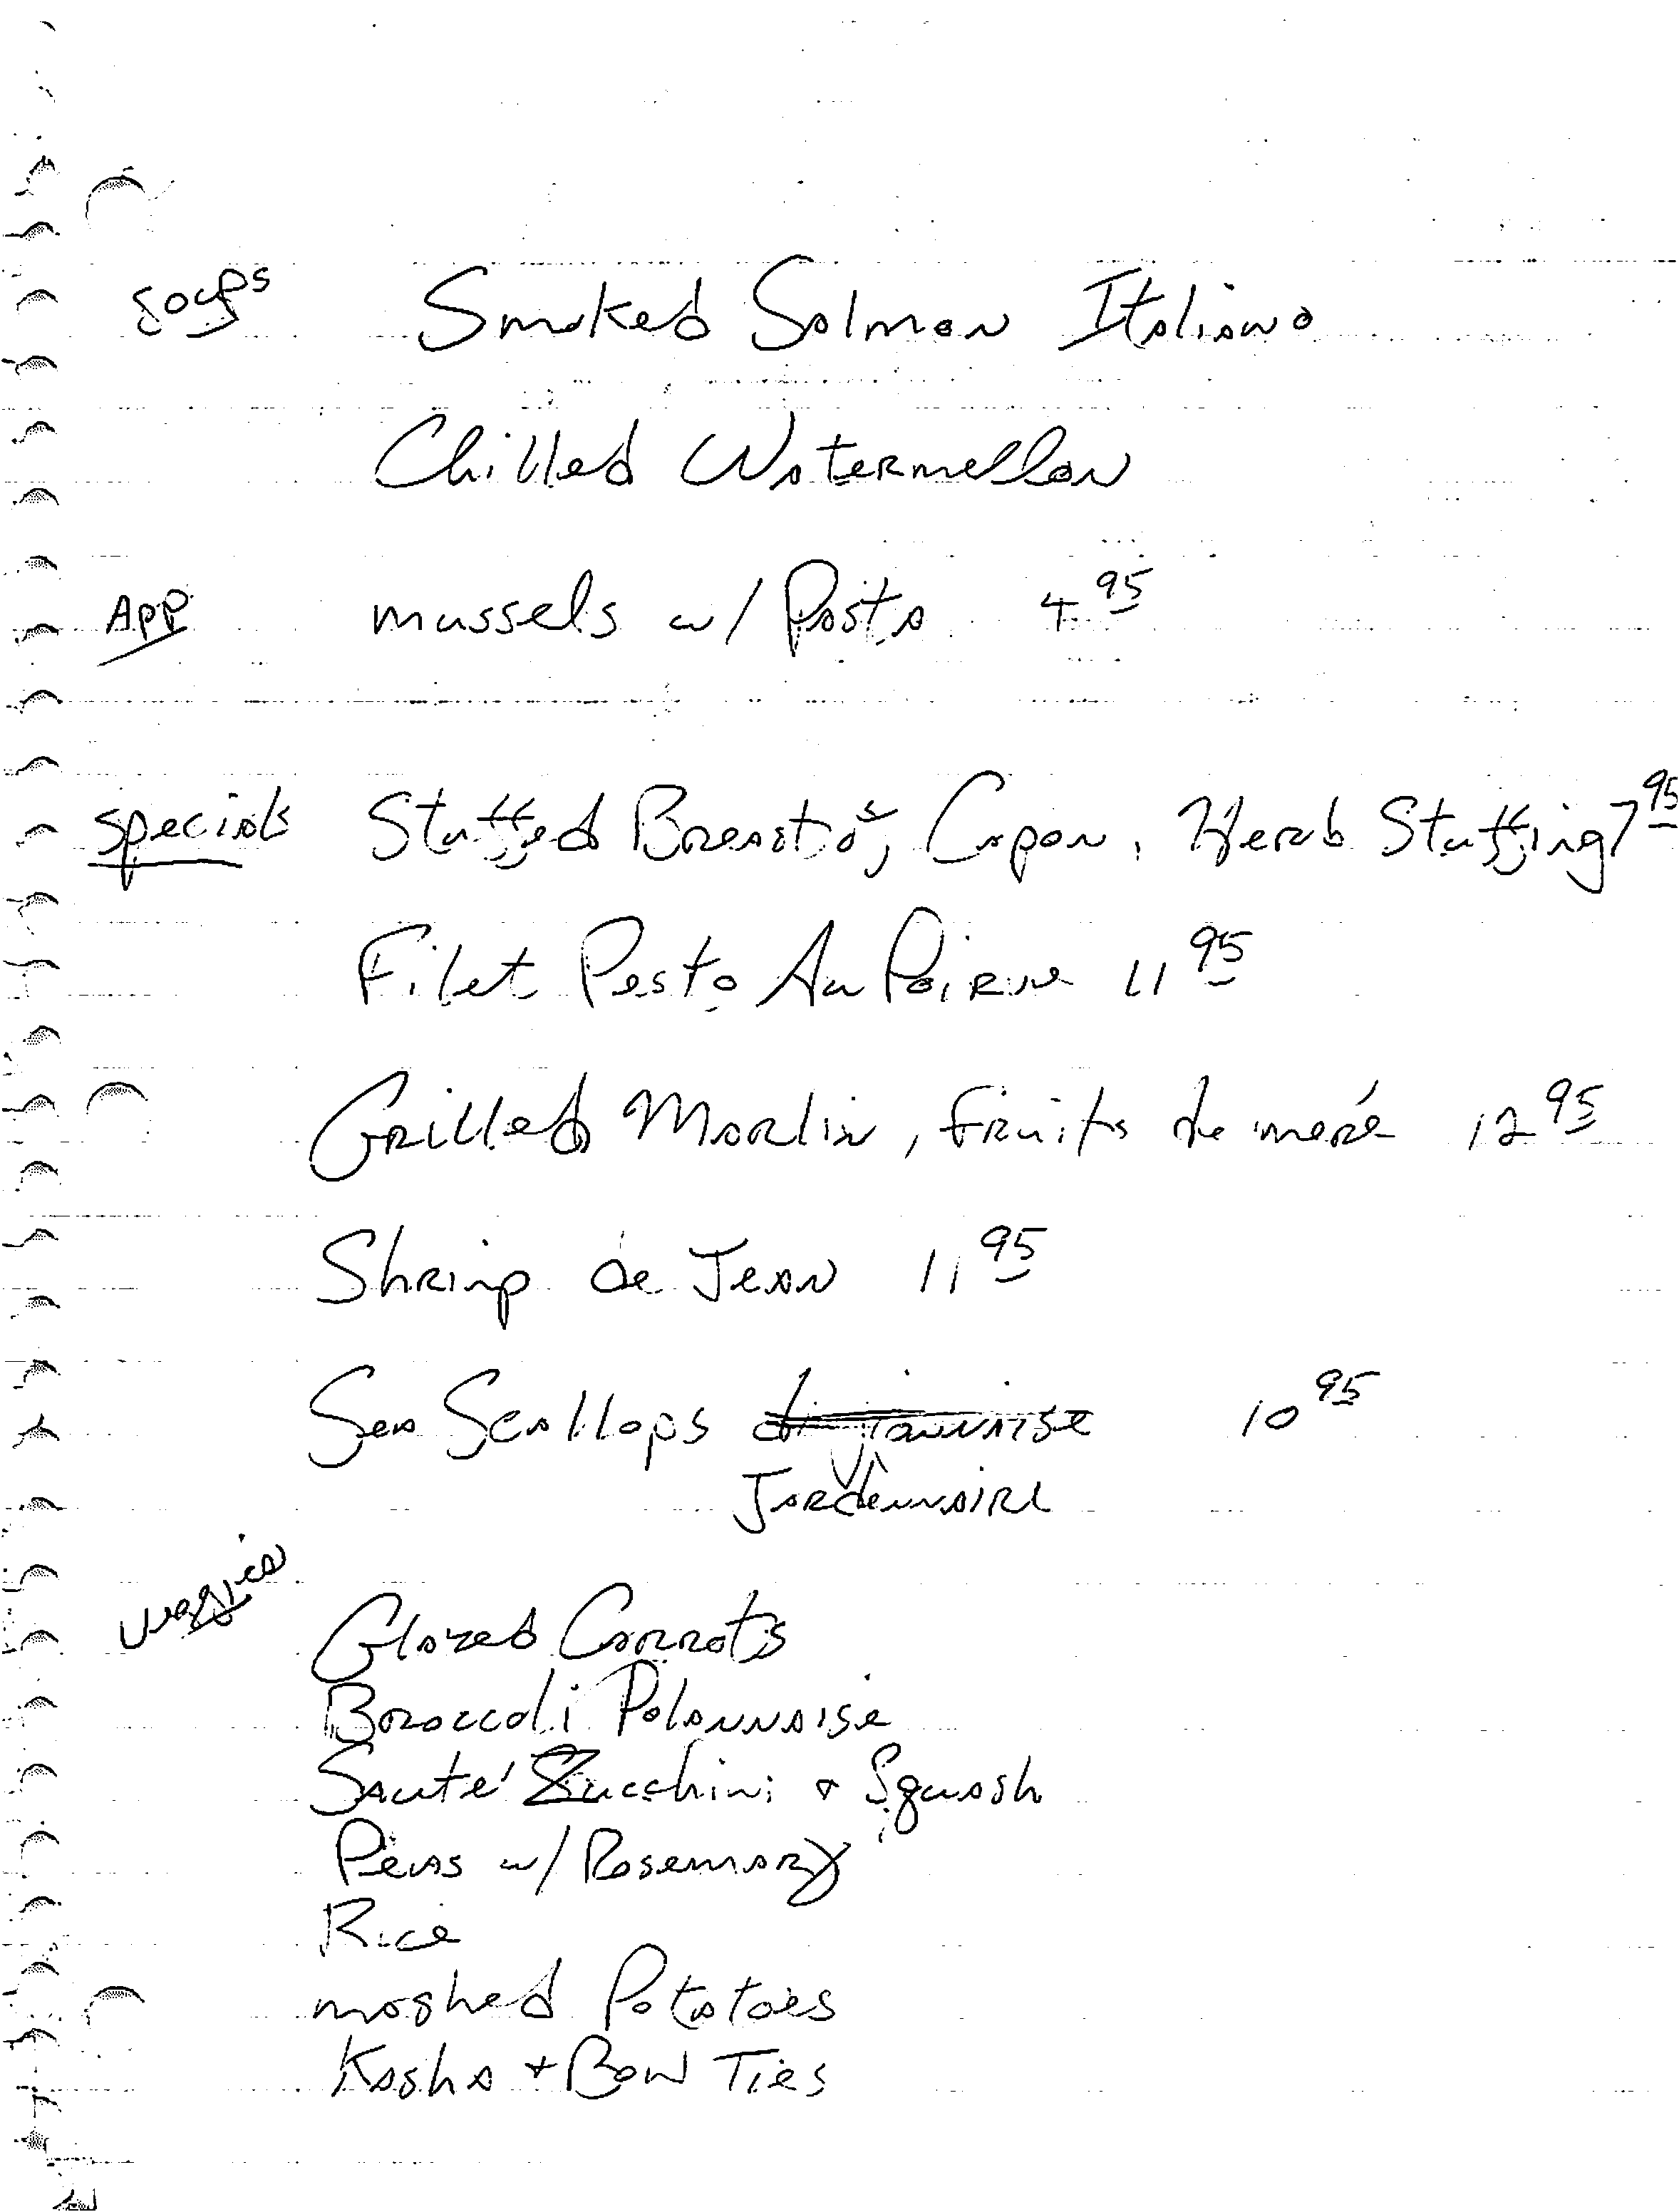 Soups Smoked Salmon Italiano
Chilled Watermellon
App mussels w/ Pasta 4 95
Specials Stuffed Breast of Capon, Herb Stuffing 7 95
Filet Pesto Au Poirve 11 95
Grilled Marlin, fruits de meré 12 95
Shrimp de Jean 11 95
Sea Scallops 10 95
Jardennaire
Veggies Glazed Carrots
Broccoli Polannaise
Sauté Zucchini + Squash
Peas w/ Rosemary
Rice
mashed Potatoes
Kasha + Bow Ties